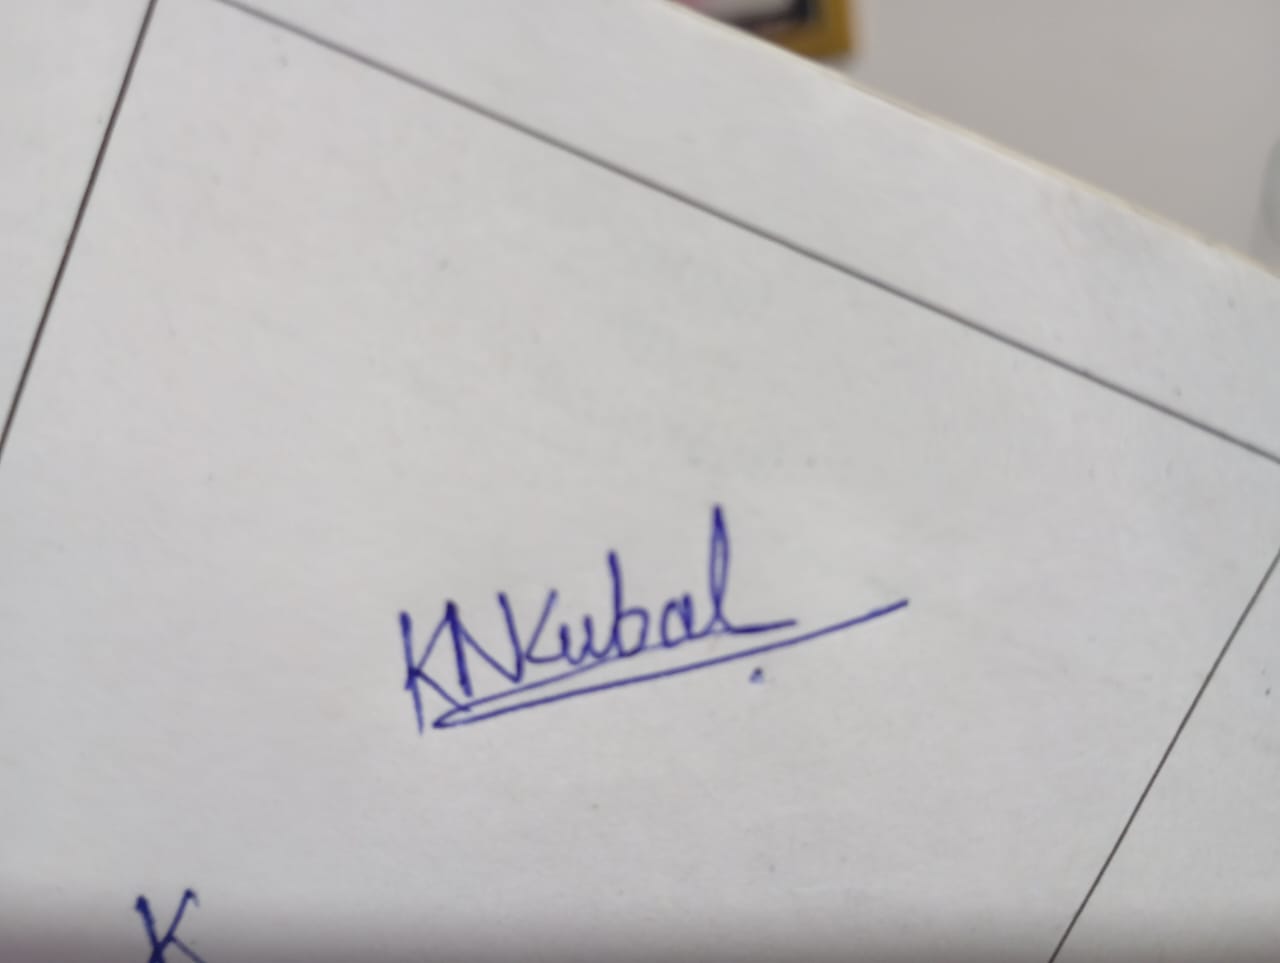 KNKubal
K